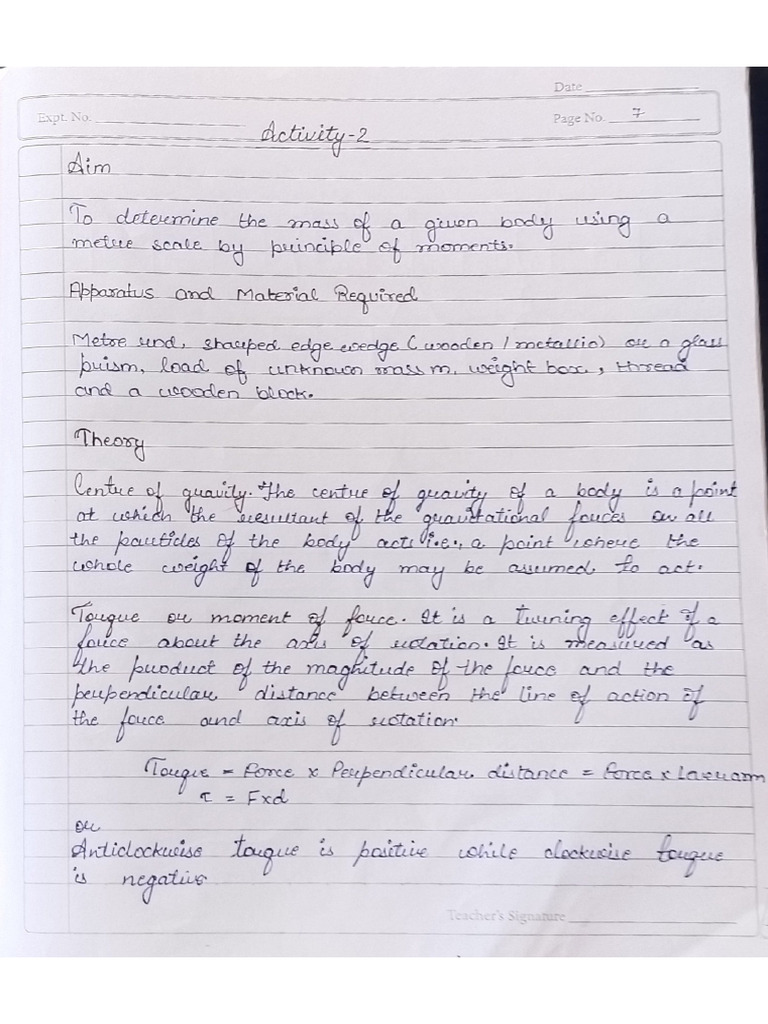 Date
Expt. No.
Page No. 7
Activity-2
Aim
To determine the mass of a given body using a
metre scale by principle of moments.
Apparatus and Material Required
Metre rod, sharped edge wedge (wooden / metallic) or a glass
prism, load of unknown mass m, weight box, thread
and a wooden block.
Theory
Centre of gravity. The centre of gravity of a body is a point
at which the resultant of the gravitational forces on all
the particles of the body acts i.e., a point where the
whole weight of the body may be assumed to act.
Torque or moment of force. It is a turning effect of a
force about the axis of rotation. It is measured as
the product of the magnitude of the force and the
perpendicular distance between the line of action of
the force and axis of rotation.
Torque = Force x Perpendicular distance = Force x Laverarm
τ = Fxd
or
Anticlockwise torque is positive while clockwise torque
is negative.
Teacher's Signature